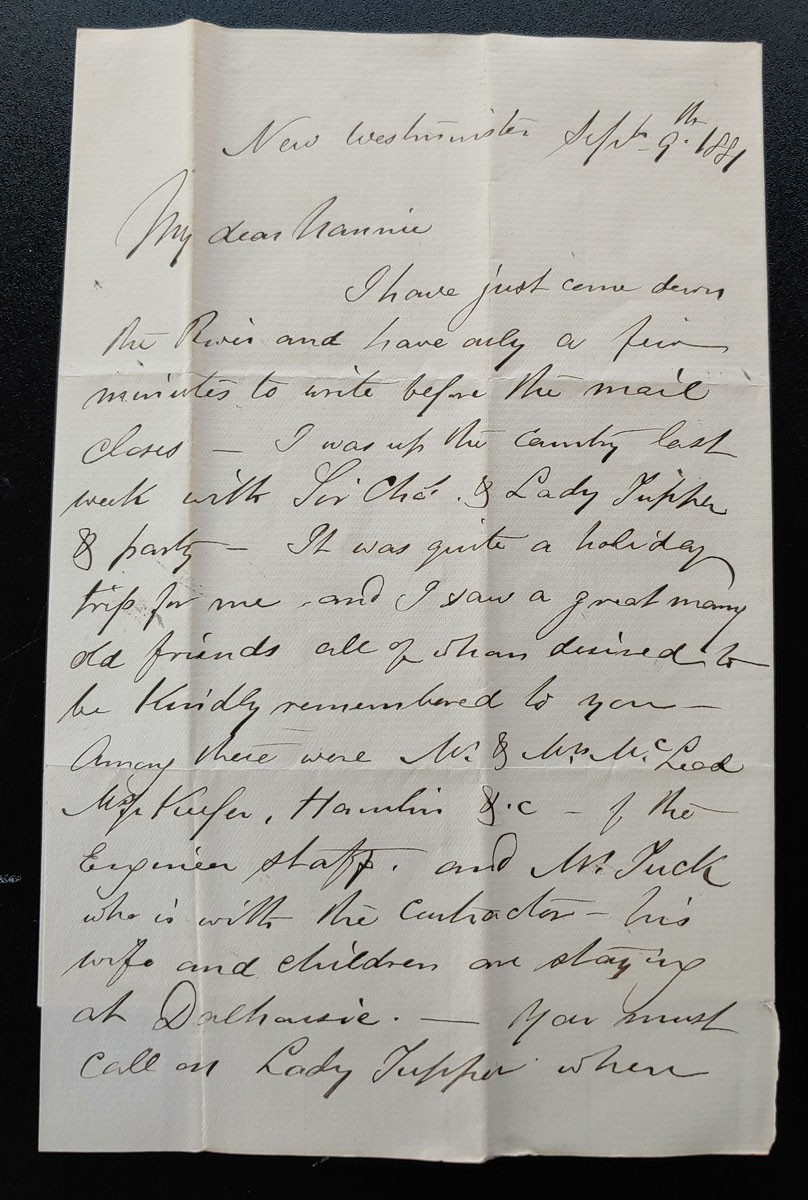 New Westminster Sept. 9th. 1881
My dear Nannie
I have just come down
the River and have only a few
minutes to write before the mail
closes — I was up the country last
week with Sir Chas. & Lady Tupper
& party — It was quite a holiday
trip for me and I saw a great many
old friends all of whom desired to
be kindly remembered to you —
Among these were Mr. & Mrs. McLeod
Messrs Keefer, Hamlin &.c — of the
Engineer staff. and Mr. Tuck
who is with the contractor — his
wife and children are staying
at Dalhousie. — You must
call on Lady Tupper when